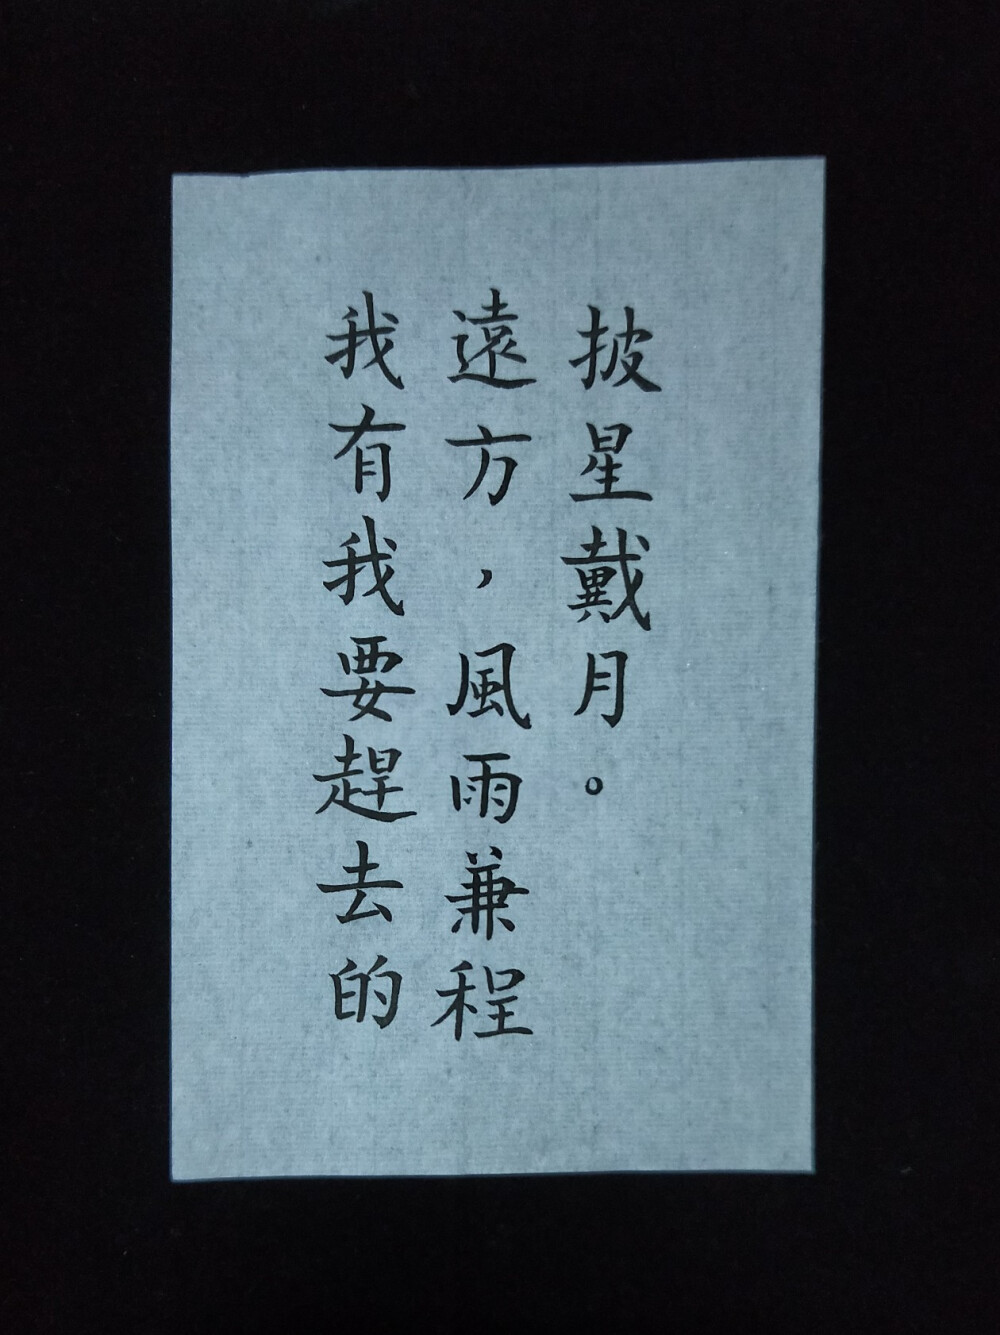 我有我要趕去的
遠方，風雨兼程
披星戴月。